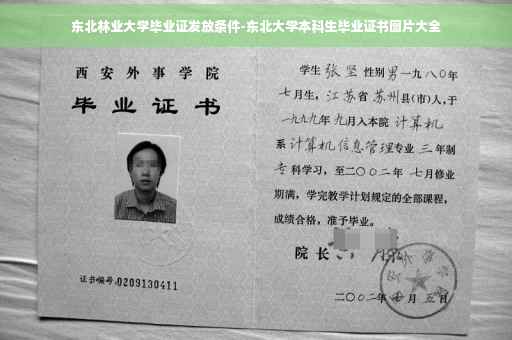 东北林业大学毕业证发放条件-东北大学本科生毕业证书图片大全
西安外事学院
毕业证书
证书编号:0209130411
学生 张坚 性别 男 一九八〇年
七月生, 江苏省 苏州县(市)人,于
一九九九年 九月入本院 计算机
系 计算机信息管理专业 三 年制
专科学习, 至二〇〇二年 七月修业
期满, 学完教学计划规定的全部课程,
成绩合格, 准予毕业。
院长
二〇〇二年 七月 五日